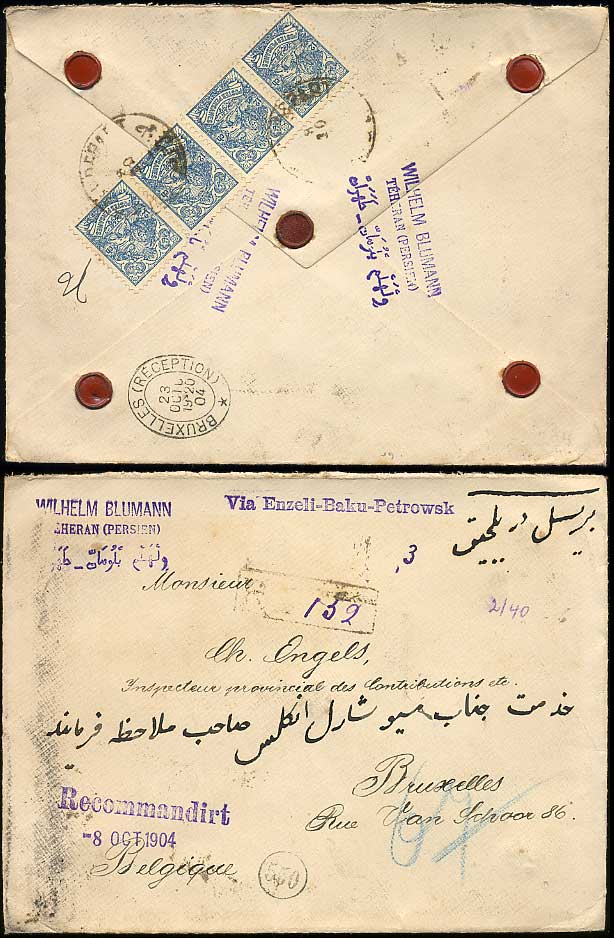 WILHELM BLUMANN
TEHERAN (PERSIEN)
ویلهلم بلومان - طهران
WILHELM BLUMANN
BRUXELLES (RÉCEPTION)
23
OCT
19-20
04
WILHELM BLUMANN
TEHERAN (PERSIEN)
Via Enzeli-Baku-Petrowsk
بریسل در بلجیق
Monsieur
152
2/40
Ch. Engels,
Inspecteur provincial des Contributions etc.
خدمت جناب مسیو شارل انگلس صاحب ملاحظه فرمایند
Bruxelles
Rue Van Schoor 86.
Recommandirt
-8 OCT 1904
Belgique
550